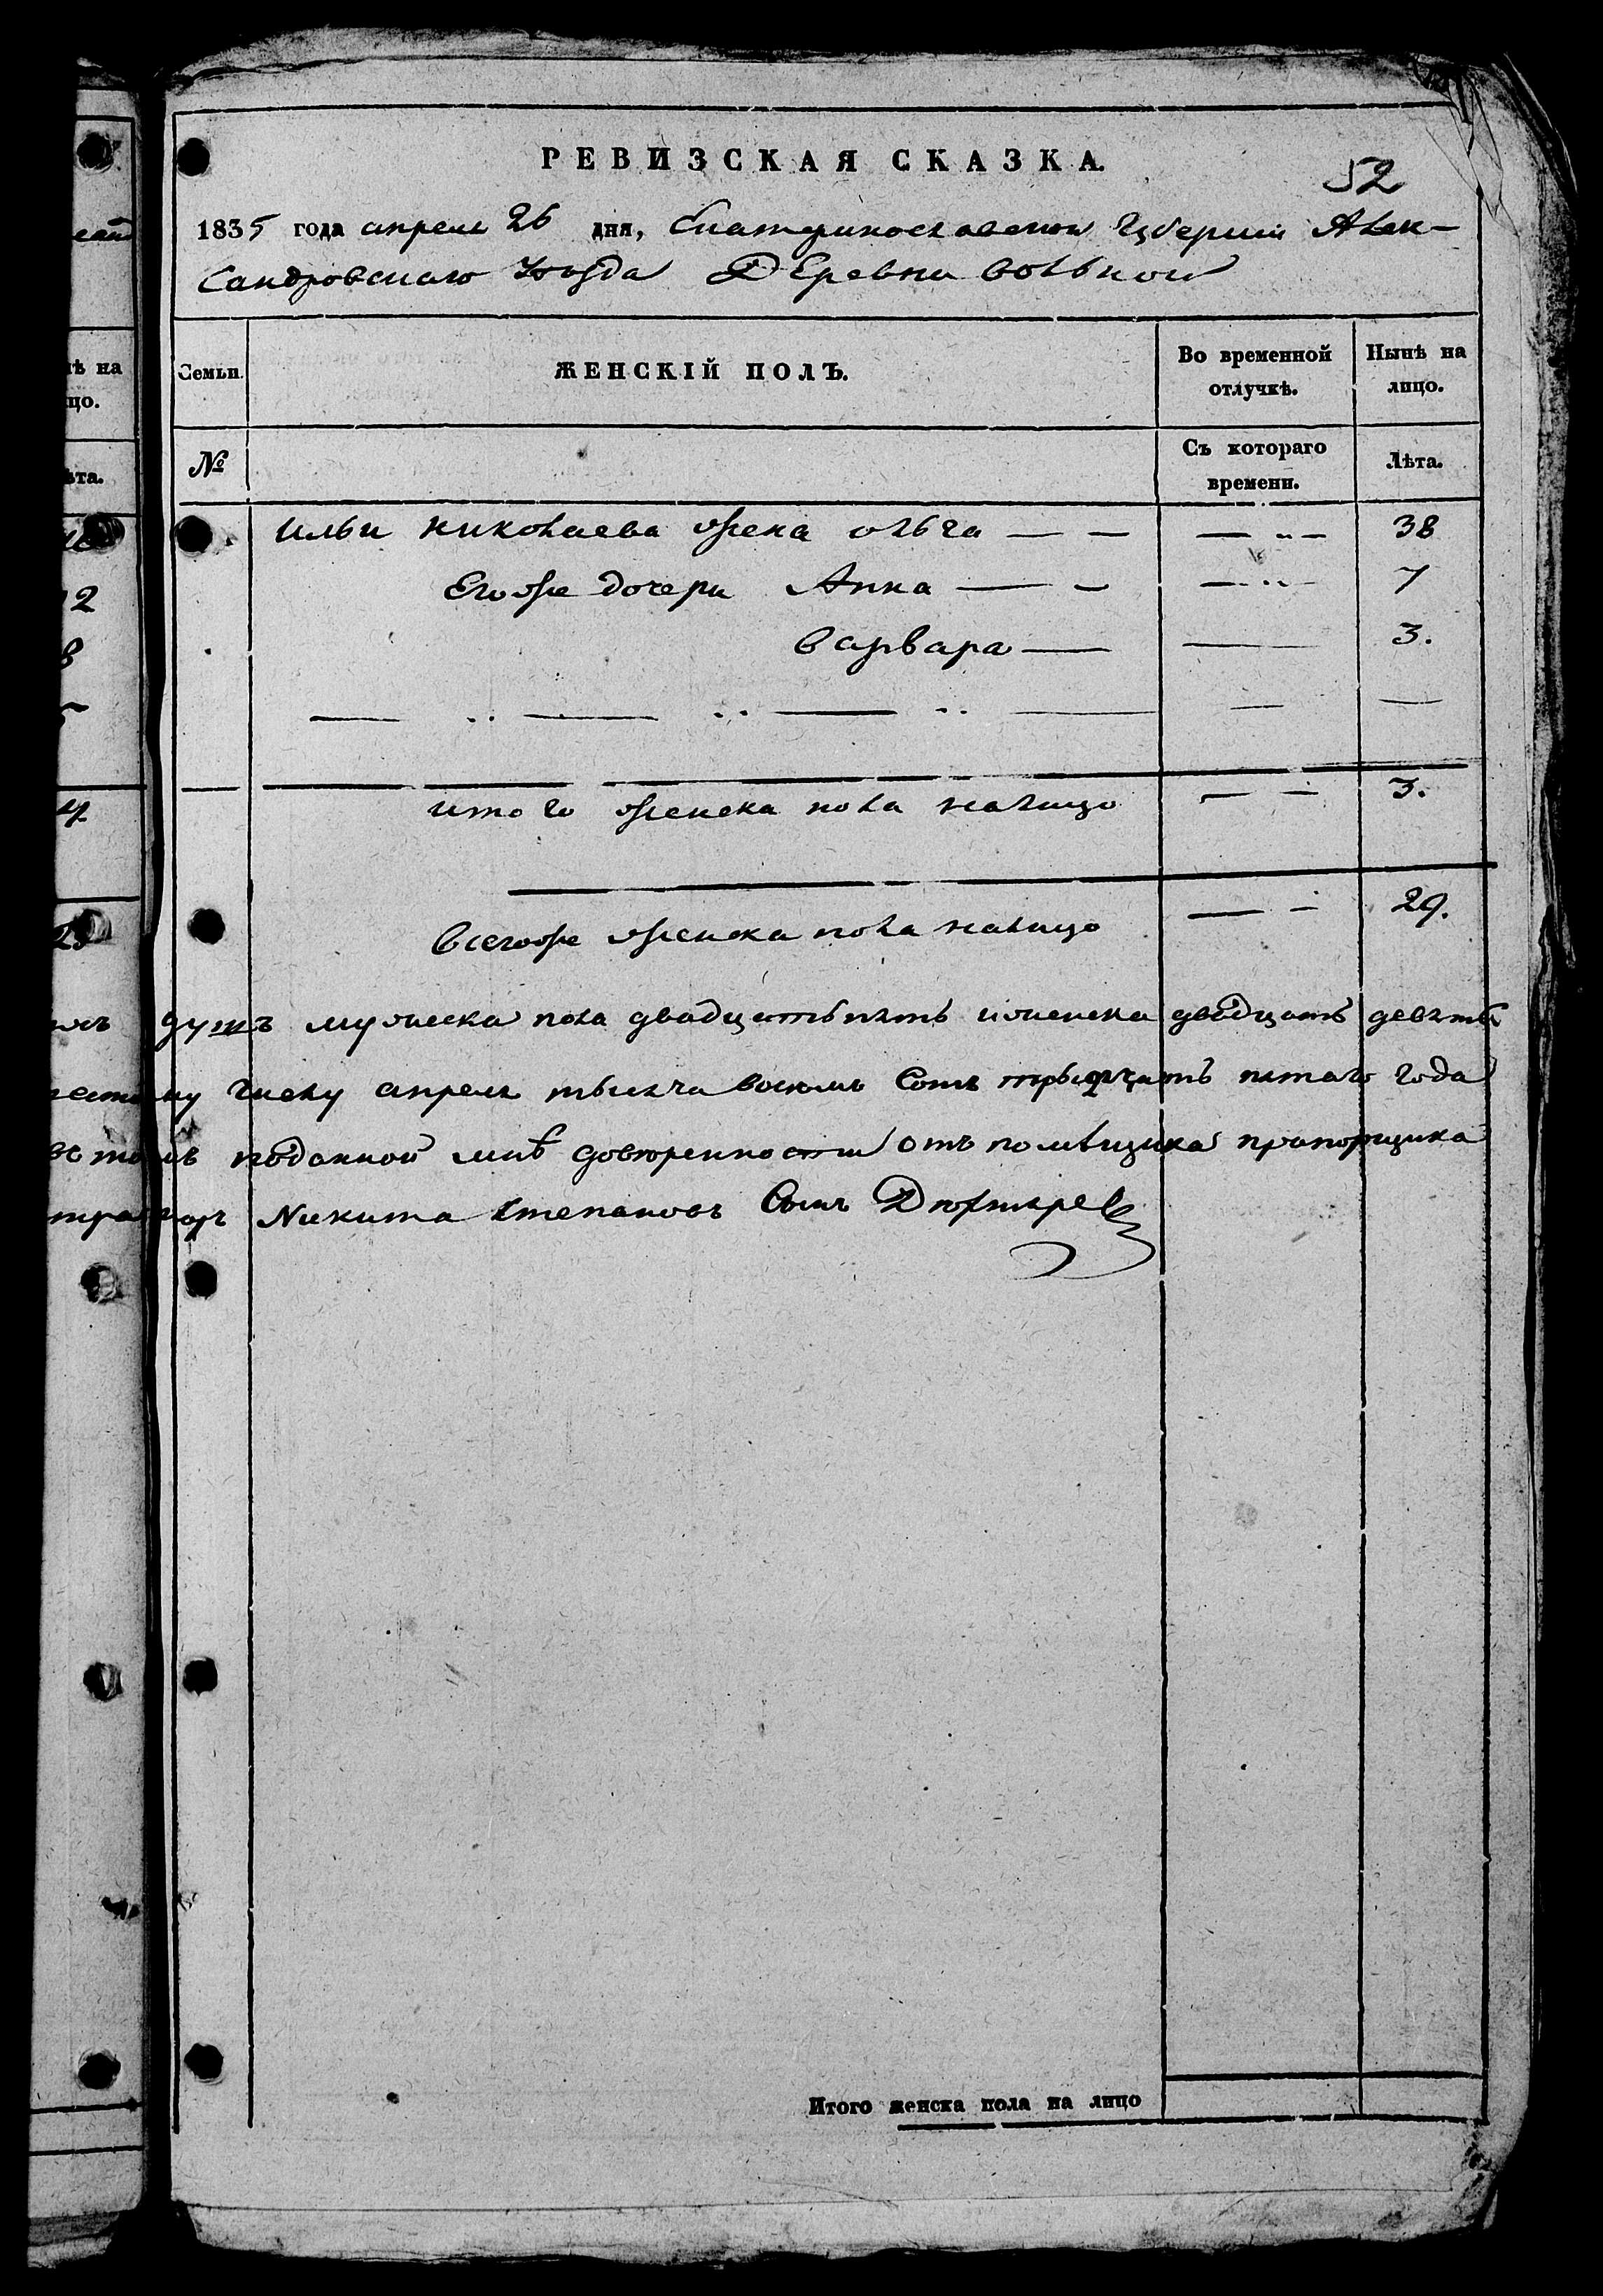 РЕВИЗСКАЯ СКАЗКА.
52
1835 года апреля 26 дня, Екатеринославской Губернии Алек-
сандровскаго Уезда Деревни вольной
Семьи. ЖЕНСКІЙ ПОЛЪ. Во временной отлучкѣ. Нынѣ на лицо.
№ Съ котораго времени. Лѣта.
Ильи николаева жена ольга — — — „ — 38
Егоже дочери Анна — — — „ — 7
варвара — — 3.
итого женска пола налицо — — 3.
всегоже женска пола налицо — — 29.
душъ мужеска пола двадцатьпять ииженска двадцать девять
числу апреля тысяча восемь сотъ трыдцать пятаго года
поданной мнѣ доверенности отъ помѣщика прапорщика
Никита степановъ Сынъ
Итого женска пола на лицо